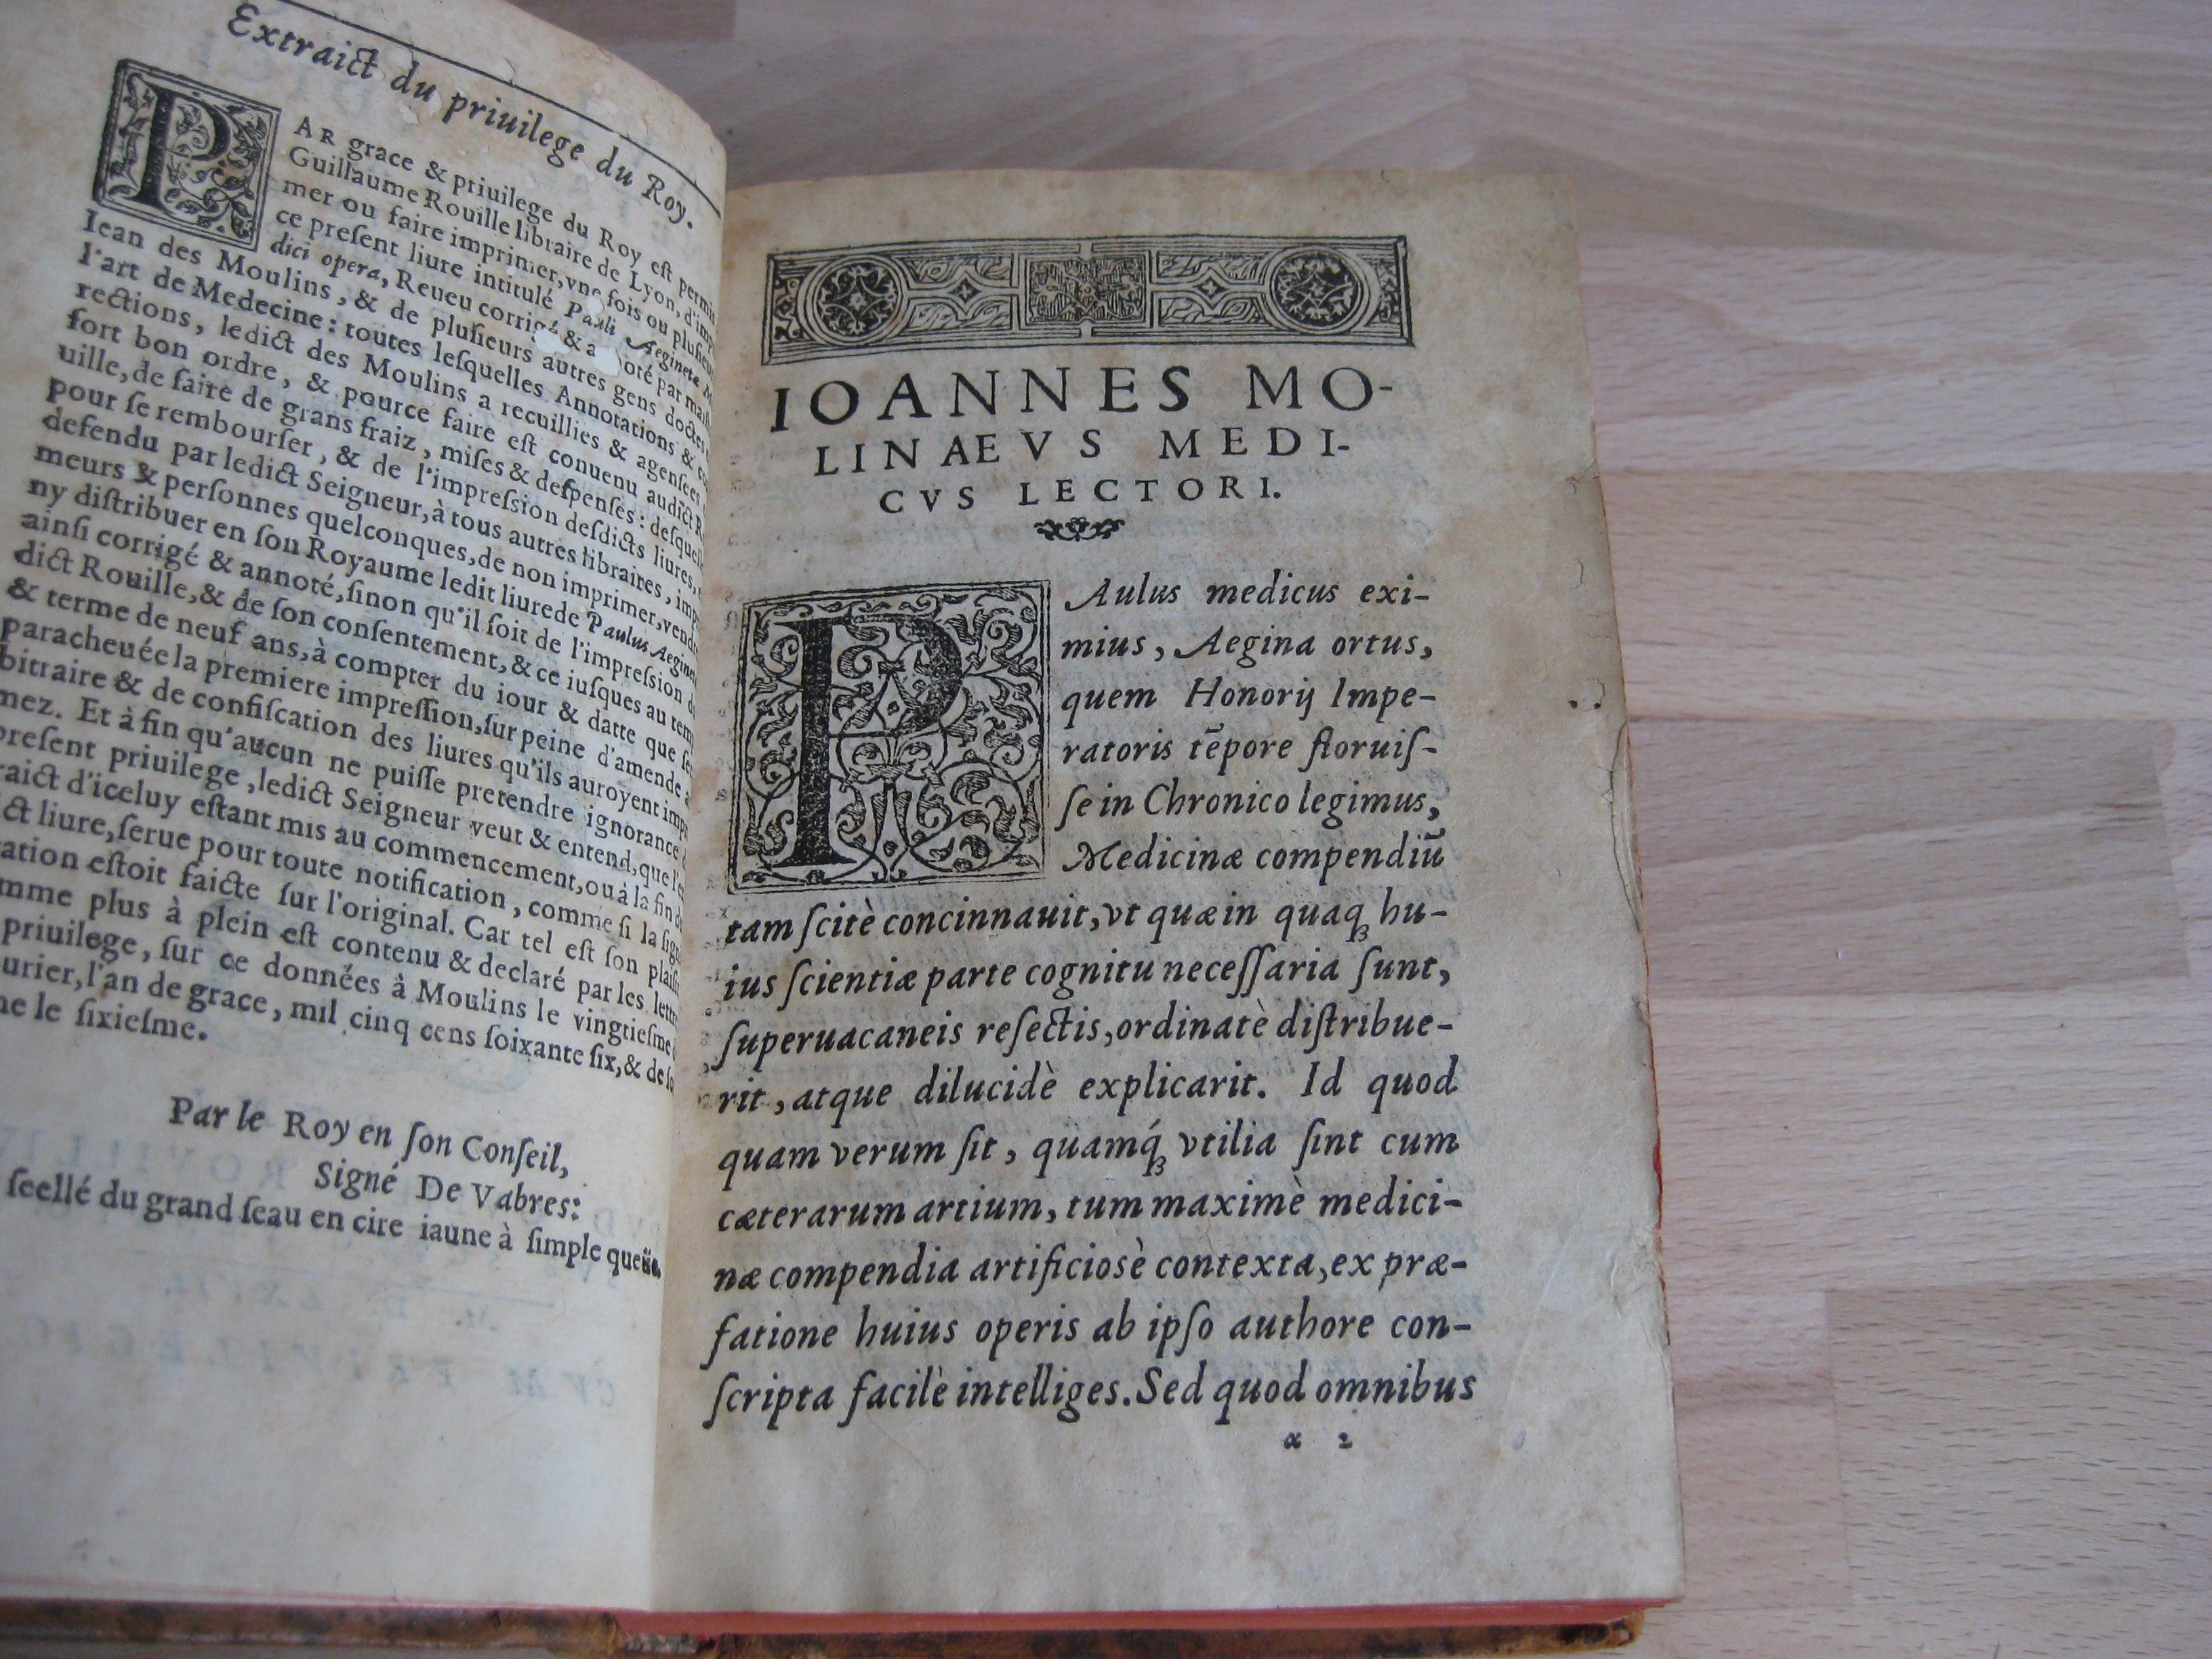 Extraict du priuilege du Roy.
PAR grace & priuilege du Roy est permis
Guillaume Rouille libraire de Lyon, d'imp
mer ou faire imprimer, vne fois ou plusieurs
ce present liure intitulé Pauli Aeginetæ
dici opera, Reueu corrigé & par
Iean des Moulins, & de plusieurs autres gens doctes
l'art de Medecine: toutes lesquelles Annotations &
rections, ledict des Moulins a recuillies & agensees
fort bon ordre, & pource faire est conuenu audict
uille, de faire de grans fraiz, mises & despenses: desquel
pour se rembourser, & de l'impression desdicts liures,
defendu par ledict Seigneur, à tous autres libraires, imp
meurs & personnes quelconques, de non imprimer, vend
ny distribuer en son Royaume ledit liure de Paulus Aegine
ainsi corrigé & annoté, sinon qu'il soit de l'impression
dict Rouille, & de son consentement, & ce iusques au tem
& terme de neuf ans, à compter du iour & datte que
paracheuée la premiere impression, sur peine d'amende
bitraire & de confiscation des liures qu'ils auroyent imp
mez. Et à fin qu'aucun ne puisse pretendre ignorance
present priuilege, ledict Seigneur veut & entend, que l'e
raict d'iceluy estant mis au commencement, ou à la fin
ct liure, serue pour toute notification, comme si la sig
ation estoit faicte sur l'original. Car tel est son plais
mme plus à plein est contenu & declaré par les lettr
priuilege, sur ce données à Moulins le vingtiesme
urier, l'an de grace, mil cinq cens soixante six, & de
ne le sixiesme.
Par le Roy en son Conseil,
Signé De Vabres:
seellé du grand seau en cire iaune à simple queüe.
IOANNES MO-
LINAEVS MEDI-
CVS LECTORI.
PAulus medicus exi-
mius, Aegina ortus,
quem Honorij Impe-
ratoris tēpore floruis-
se in Chronico legimus,
Medicinæ compendiū
tam scitè concinnauit, vt quæ in quaq; hu-
ius scientiæ parte cognitu necessaria sunt,
superuacaneis resectis, ordinatè distribue-
rit, atque dilucidè explicarit. Id quod
quam verum sit, quamq́; vtilia sint cum
cæterarum artium, tum maximè medici-
næ compendia artificiosè contexta, ex præ-
fatione huius operis ab ipso authore con-
scripta facilè intelliges. Sed quod omnibus
a 2